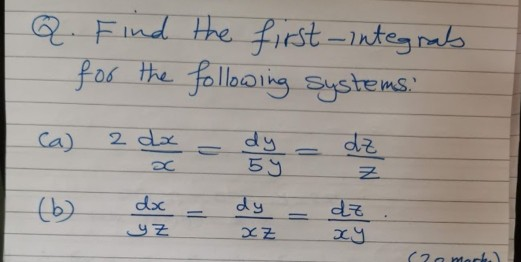 Q. Find the first-integrals
for the following systems:
(a) 2 dx/x = dy/5y = dz/z
(b) dx/yz = dy/xz = dz/xy.
(20 marks)